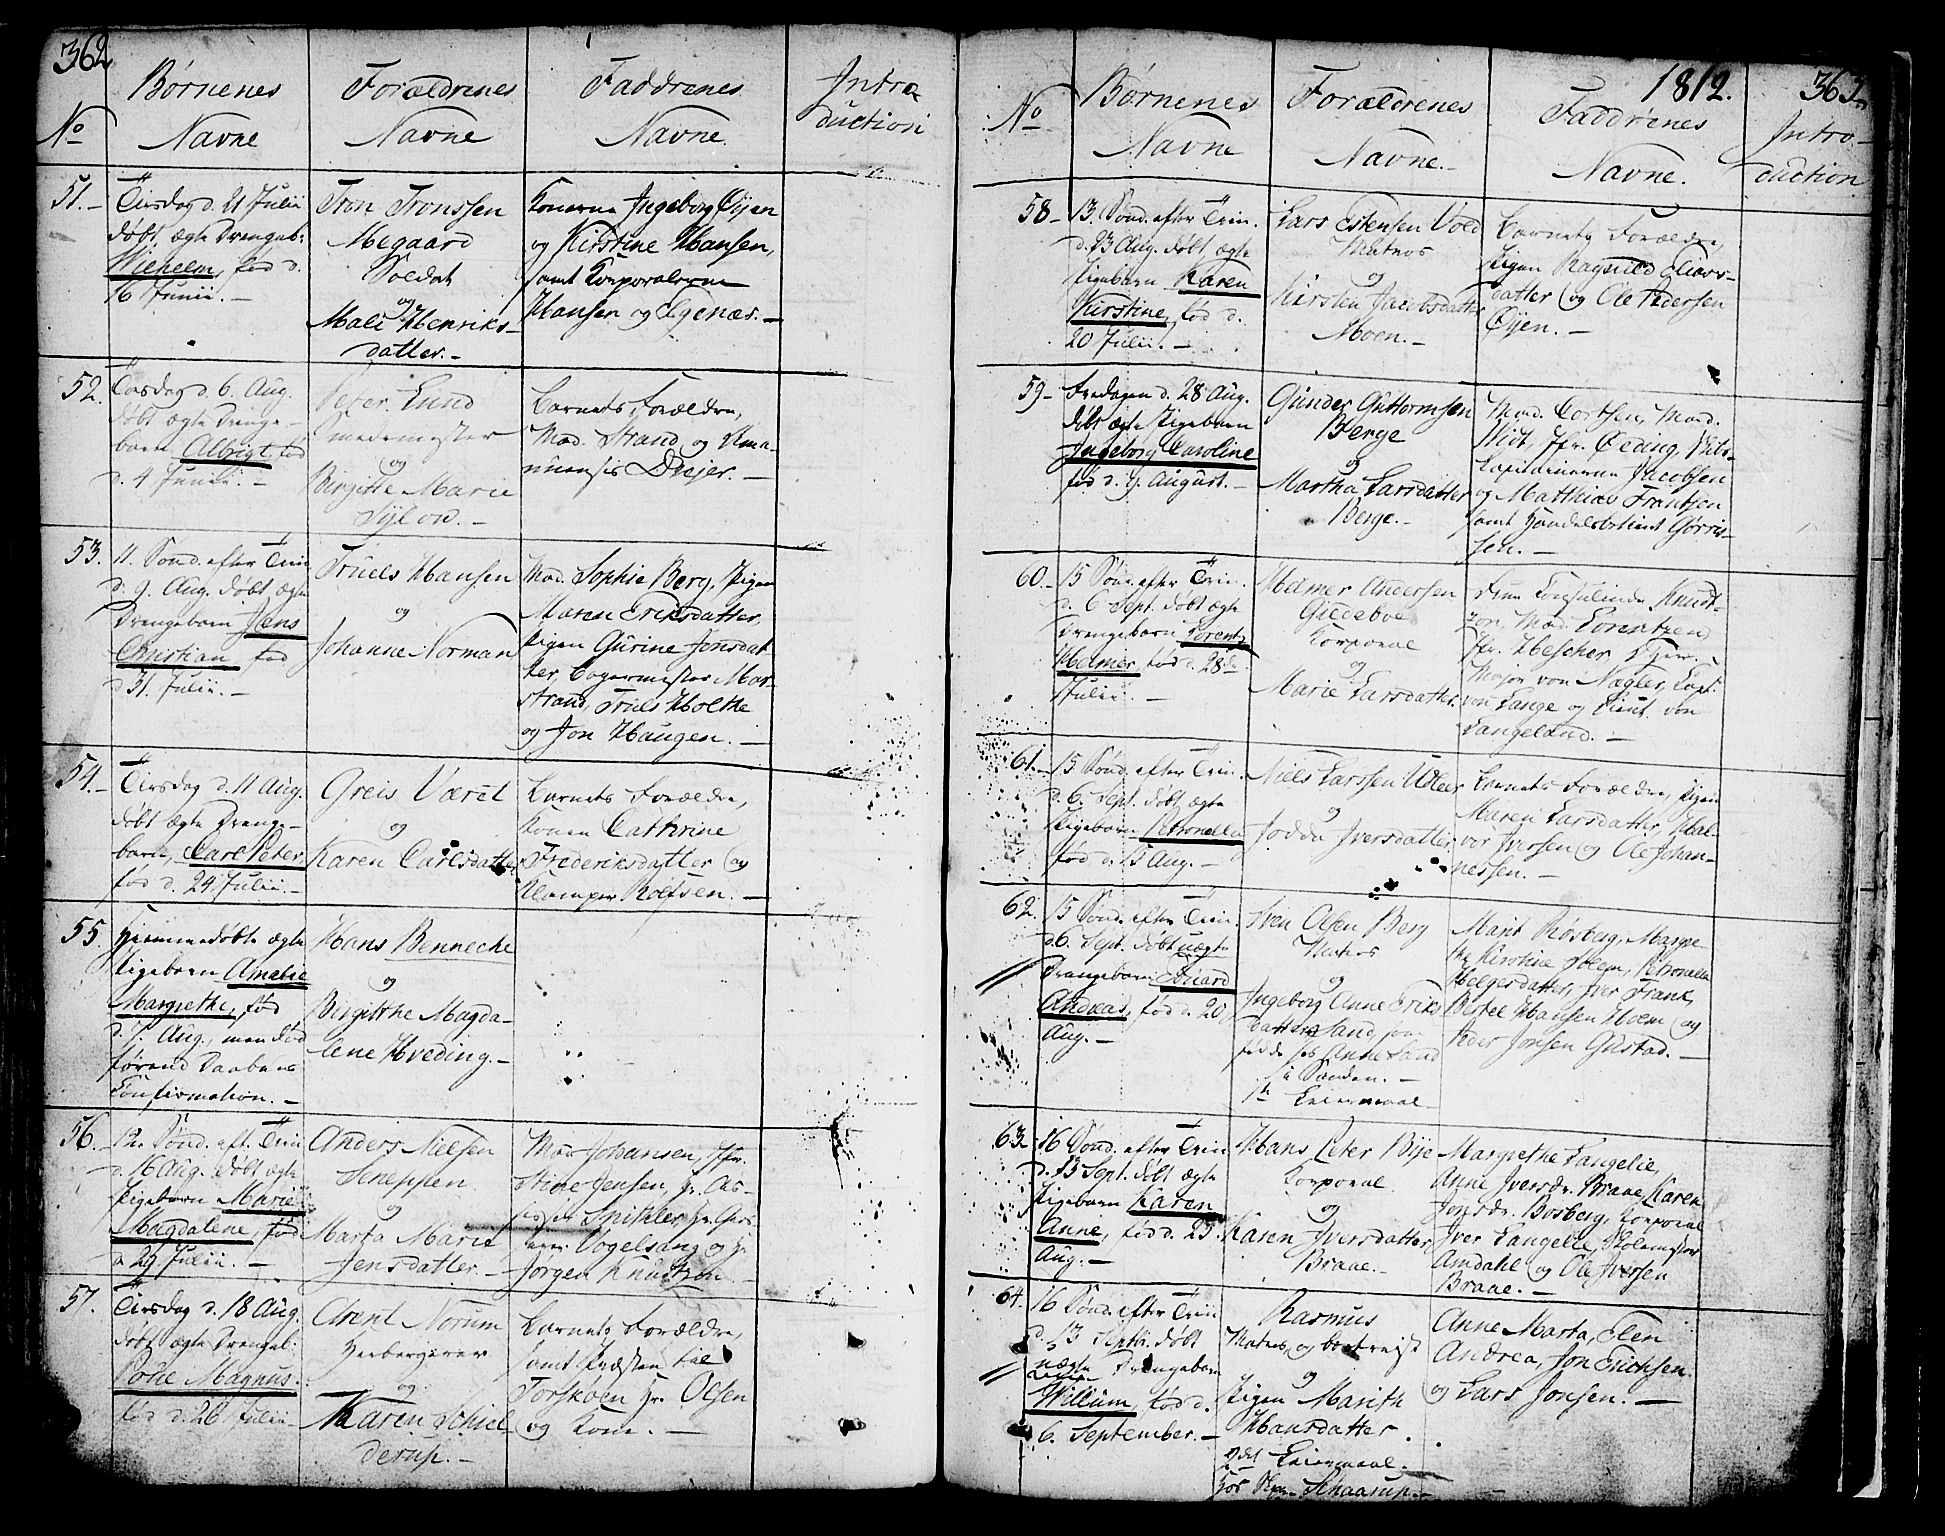 362
No
Børnenes
Navne
Forældrenes
Navne
Faddrenes
Navne.
Intro-
duction
51.-
Tirsdag d. 21 Julii
døbt ægte Drengeb:
Wilhelm, fød d.
16 Junii.-
Tron Tronssen
Megaard
Soldat
og
Mali Henriks-
datter.-
Konerne Ingeborg Øyen
og Kirstine Hansen,
samt Korporalerne
Hansen og Egenæs.-
52.
Torsdag d. 6. Aug.
døbt ægte Drenge-
barn Albrigt, fød
d. 4 Junii.-
Peter Lund
og
Birgitte Marie
Sylow.-
Barnets Forældre,
Mad. Strand og Ama-
nuensis Drejer.-
53.
11. Sønd. efter Trin
d. 9. Aug. døbt ægte
Drengebarn Jens
Christian, fød
d 31. Julii.-
Truels Hansen
og
Johanne Norman
Mad. Sophie Berg, Pigen
Maren Eriksdatter,
Pigen Gurine Jonsdat
ter, Bagermester Mar-
strand, Truls Holthe
og Jon Haugen.-
54.-
Tirsdag d. 11 Aug.
døbt ægte Drenge-
barn, Carl Peter
fød d. 24. Julii.-
Greis Værel
og
Karen Carlsdatter
Barnets Forældre,
Konen Cathrine
Frederiksdatter og
Klemper Rolfsen.-
55.
Hjemmedøbt ægte
Pigebarn Amalie
Margrethe, fød
d. 7. Aug., men død
førend Daabens
Confirmation.-
Hans Bennecke
og
Birgitthe Magda-
lene Hveding.-
56.
12. Sønd. eft. Trin
d. 16 Aug. døbt ægte
Pigebarn Marie
Magdalene, fød
d 29 Julii.-
Anders Nielsen
Sneppen
og
Marta Marie
Jensdatter.-
Mad Johansen, Jfr.
Stine Jensen, Hr. As-
sessor Spithler, Hr.
Vogelsang og Hr.
Jørgen Knudtzon
57.
Tirsdag d. 18 Aug.
døbt ægte Drengeb:
Poul Magnus.
fød d. 26 Julii-
Arent Norum
Herbergerer
og
Karen Schiel
derup.-
Barnets Forældre,
samt Præsten til
Torskøen Hr. Olsen
og Kone.-
1812.
363
No
Børnenes
Navne
Forældrenes
Navne.
Faddrenes
Navne.
Intro-
duction
58-
13. Sønd. efter Trin.
d. 23 Aug. døbt ægte
Pigebarn Karen
Kirstine, fød d.
20 Julii.-
Lars Estensen Vold
Matros
og
Kirsten Jacobsdatter
Moen.-
Barnets Forældre,
Pigen Ragnild Olavs-
datter og Ole Pedersen
Øyen.-
59-
Fredagen d. 28 Aug.
døbt ægte Pigebarn
Ingeborg Caroline
fød d. 9. August.-
Gunder Guttormsen
Berge
og
Martha Larsdatter
Berge.-
Mad. Coxtsen, Mad.
Widt, Jfr. Øeding, Skibs-
kapitainerne Jacobsen
og Matthias Frantzen
samt Handelsbetient Gørris-
sen.-
60.-
15 Sønd. efter Trin.
d. 6 Sept. døbt ægte
Drengebarn Lorentz
Hemer, fød d. 28de
Julii.-
Hemer Andersen
Gieleboe
Korporal
og
Marie Larsdatter.
Frue Consulinde Knudt-
zon, Mad. Lorentzen
Jfr. Hescher, Herr.
Major von Nægler, Capt.
von Lange og Lieut. von
Langeland.-
61.-
15 Sønd. efter Trin.
d. 6. Sept. døbt ægte
Pigebarn Petronella
fød d. 15 Aug.-
Niels Larssen Udleer
og
Jodda Iversdatter
Barnets Forældre, Pigen
Maren Larsdatter, Hal-
vor Iversen og Ole Johan-
nessen.-
62.
15 Sønd. efter Trin.
d. 6. Sept. døbt uægte
Drengebarn Eduard
Andreas, fød d. 20
Aug.-
Sven Olsen Berg
Matros
og
Ingeborg Anne Eriks
datter Sand, som
fødde hos Anne Sand
i Sanden.-
1te Leiermaal-
Marit Røsberg, Margre
the Kirstine Solem, Petronella
Helgersdatter, Iver Frank,
Bertel Hansen Holm og
Peder Jonsen Gustad.-
63-
16 Sønd. efter Trin
d. 13 Sept. døbt ægte
Pigebarn Karen
Anne, fød d. 25.
Aug.-
Hans Peter Bye
Korporal
og
Karen Iversdatter
Braae.-
Margrethe Langelie,
Anne Iversdr. Braae, Karen
Jonsdr. Bosberg, Korporal
Iver Langelie, Skolemester
Amdahl og Ole Iversen
Braae.-
64.
16 Sønd. efter Trin
d. 13 Septbr. døbt
uægte Drengebarn
Willum, fød d.
6. September.-
Rasmus
Matros, og bortreist
og
Pigen Marith
Hansdatter.
2det Leiermaal.-
hos Schaarup.-
Anne Marta, Elen
Andrea, Jon Erichsen
og Lars Jonsen.-